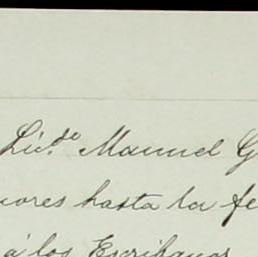 Licdo Manuel G
nores hasta la fe
á los Escribanos